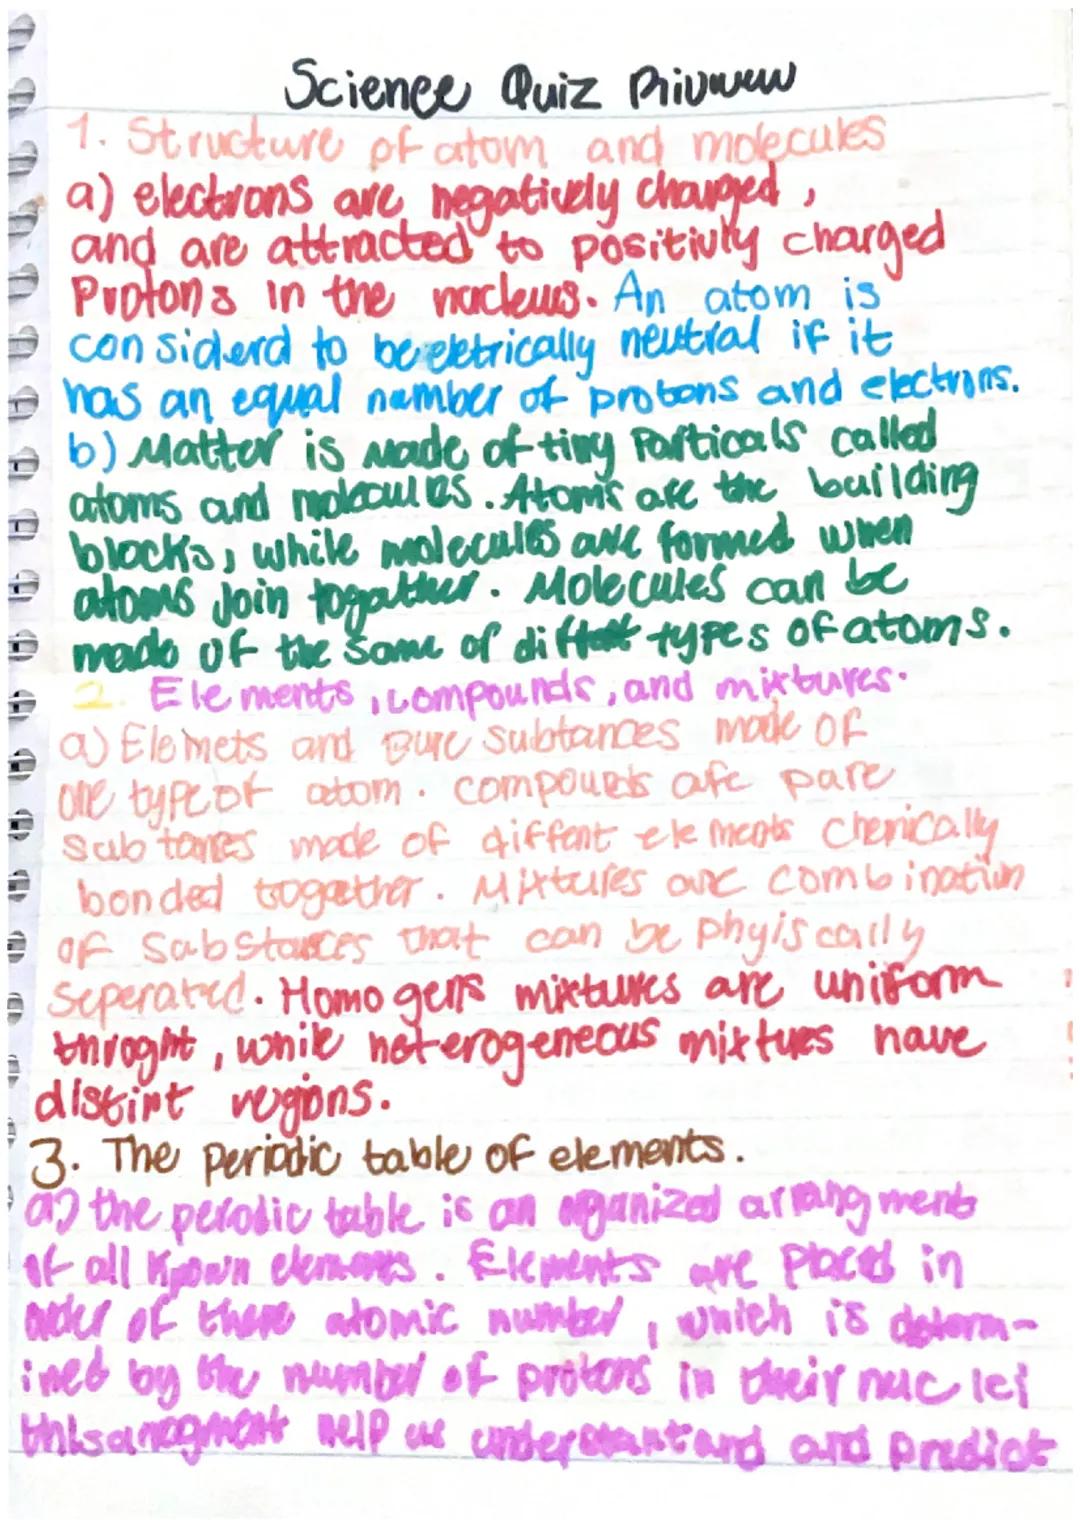 Science Quiz Privuew
1. Structure of atom and molecules
a) electrons are negatively charged,
and are attracted to positivly charged
Protons in the nucleus. An atom is
considerd to be eletrically neutral if it
has an equal number of protons and electrons.
b) Matter is Made of tiny Particals called
atoms and molecules. Atoms are the building
blocks, while molecules are formed when
atoms Join togather. Molecules can be
made of the same of types of atoms.
2. Elements, compounds, and mixtures.
a) Elemets and Pure subtances made of
one type of atom. compounds are pure
subtances made of diffent elements chemically
bonded together. Mixtures are combination
of Substances that can be phyiscally
seperated. Homogens mixtures are uniform
throght, while heterogeneous mixtures have
distint regions.
3. The periodic table of elements.
a) the perodic table is an organized arrangment
of all Known elements. Elements are placed in
order of there atomic number, which is determ-
ined by the number of protons in their nuclei
this help us and predict